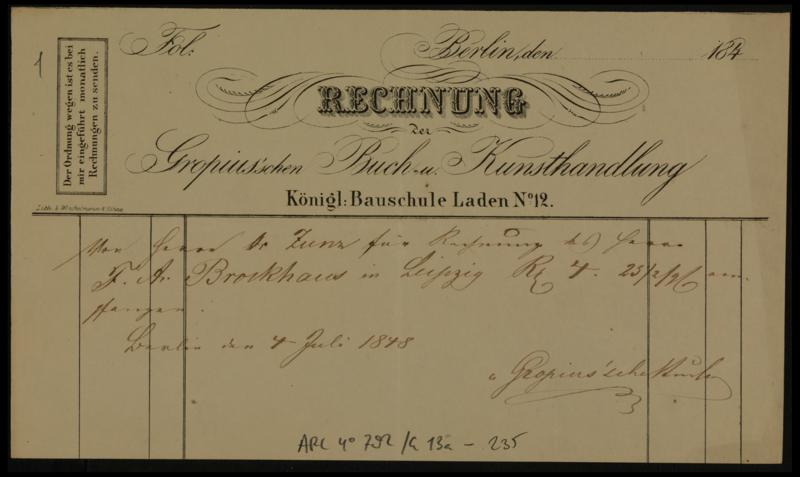 1
Der Ordnung wegen ist es bei
mir eingeführt monatlich
Rechnungen zu senden.
Fol:
Berlin, den 184
RECHNUNG
der
Gropius'schen Buch- u. Kunsthandlung
Königl: Bauschule Laden No 12.
Von Herrn Dr Zunz für Rechnung des Herrn
F. A. Brockhaus in Leipzig 4. 25 em
pfangen.
Berlin den 4 Juli 1848
Gropius'sche
ARC 4° 792 /G 13a - 235